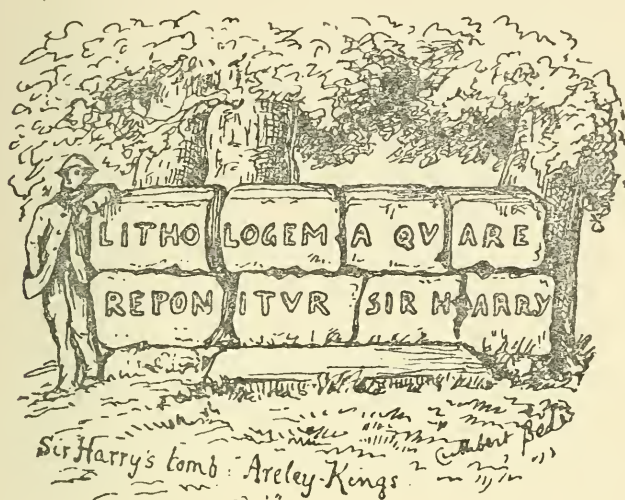 LITHOLOGEMA QVARE
REPONITVR SIR HARRY
Sir Harry's tomb: Areley-Kings
Cuthbert Bede